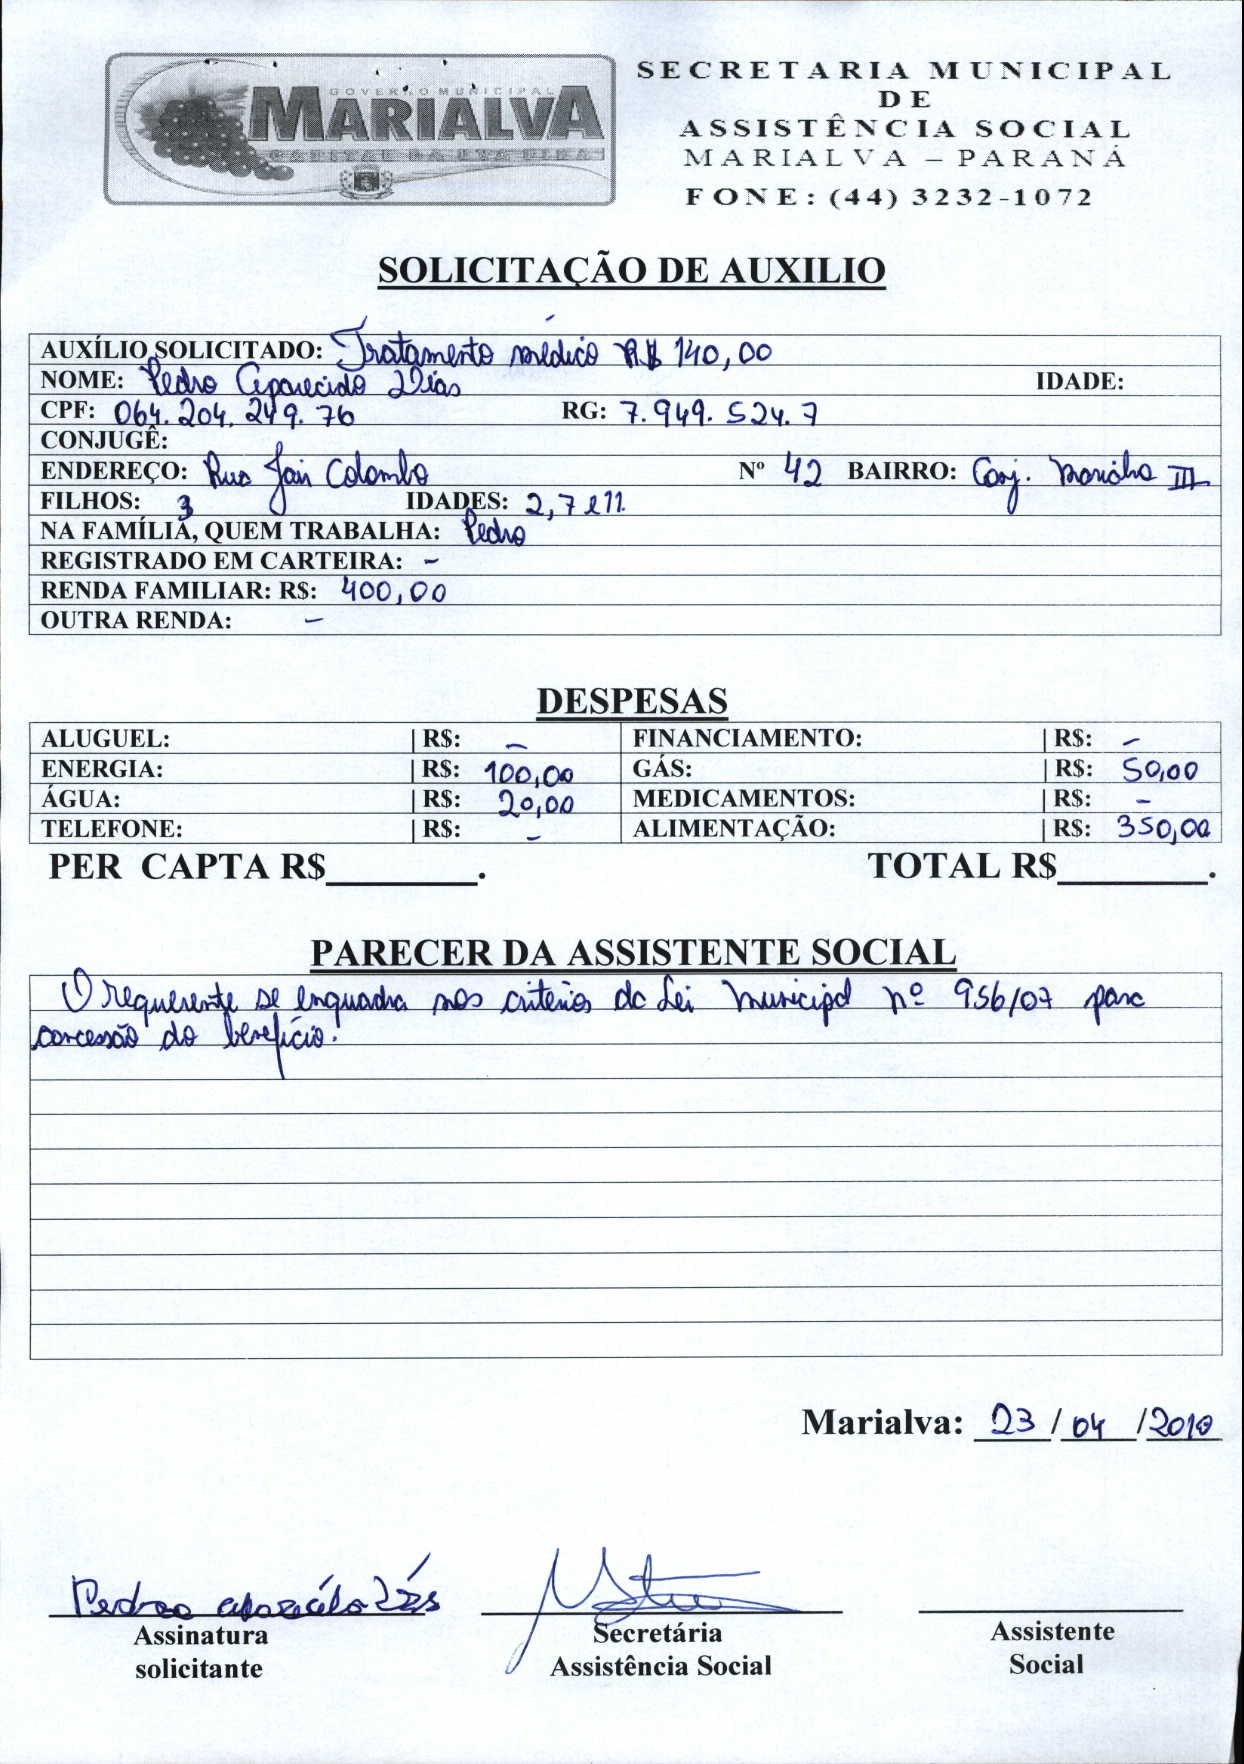 GOVERNO MUNICIPAL
MARIALVA
CAPITAL DA UVA FINA
SECRETARIA MUNICIPAL
DE
ASSISTÊNCIA SOCIAL
MARIALVA – PARANÁ
FONE: (44) 3232-1072
SOLICITAÇÃO DE AUXILIO
AUXÍLIO SOLICITADO: Tratamento médico R$ 140,00
NOME: Pedro Aparecido Dias IDADE:
CPF: 064.204.249.76 RG: 7.949.524.7
CONJUGÊ:
ENDEREÇO: Rua Jair Colombo Nº 42 BAIRRO: Conj. III
FILHOS: 3 IDADES: 2,7 e 11.
NA FAMÍLIA, QUEM TRABALHA: Pedro
REGISTRADO EM CARTEIRA: -
RENDA FAMILIAR: R$: 400,00
OUTRA RENDA: -
DESPESAS
ALUGUEL: | R$: - FINANCIAMENTO: | R$: -
ENERGIA: | R$: 100,00 GÁS: | R$: 50,00
ÁGUA: | R$: 20,00 MEDICAMENTOS: | R$: -
TELEFONE: | R$: - ALIMENTAÇÃO: | R$: 350,00
PER CAPTA R$________. TOTAL R$________.
PARECER DA ASSISTENTE SOCIAL
O requerente se enquadra nos critérios da Lei Municipal nº 956/07 para
concessão do benefício.
Marialva: 23 / 04 /2010
Pedro aparecido Dias
Assinatura
solicitante
Secretária
Assistência Social
Assistente
Social